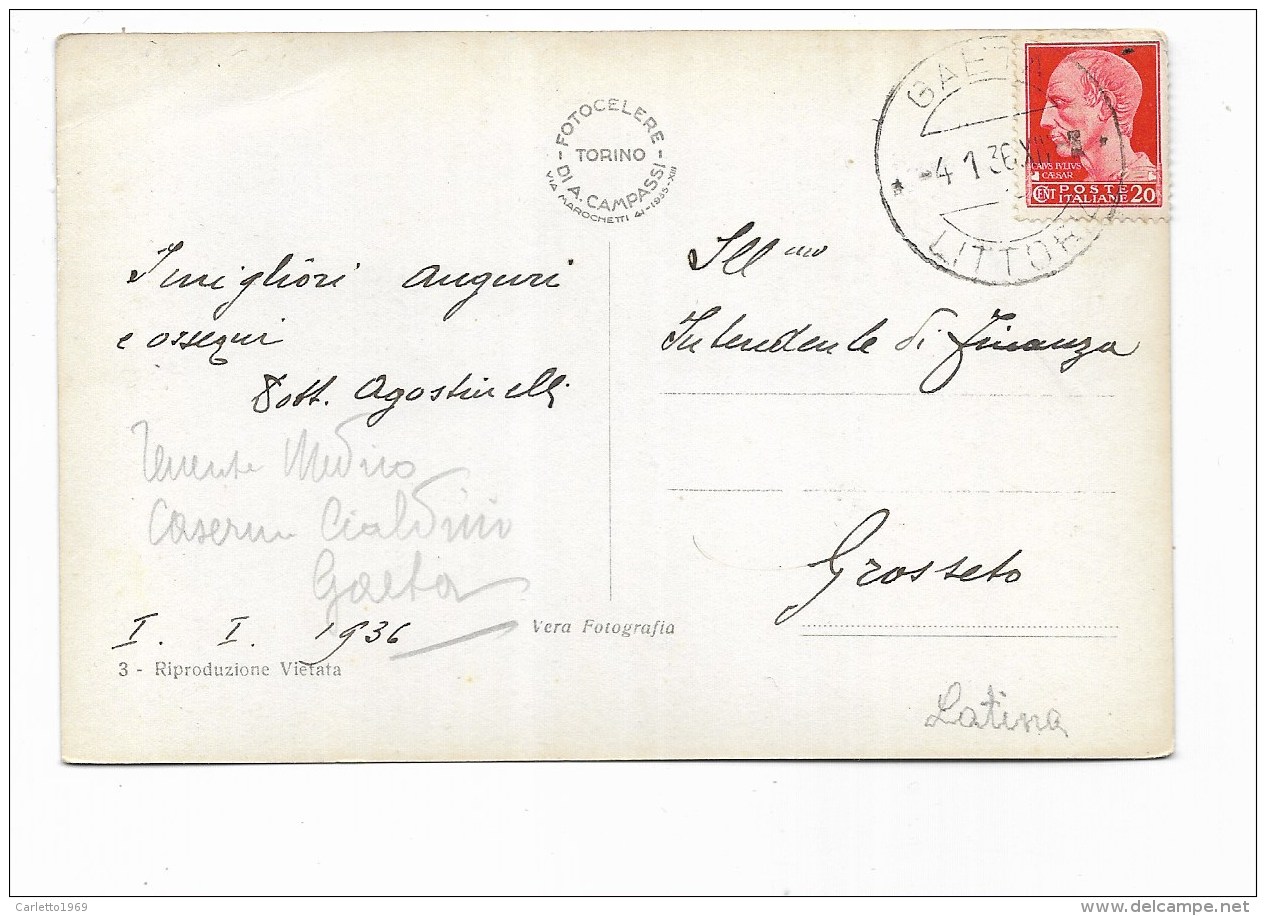 FOTOCELERE
TORINO
DI A. CAMPASSI
VIA MAROCHETTI 41-1935-XIII
GAETA
-4.1.36.XIV
LITTORIA
CAIVS IVLIVS
CÆSAR
CENT POSTE ITALIANE 20
I migliori auguri
e ossequi
Dott. Agostinelli
Tenente Medico
Caserma Cialdini
Gaeta
I. I. 1936
3 - Riproduzione Vietata
Vera Fotografia
Ill mo
Intendente di Finanza
Grosseto
Latina
Carletto1969
delcampe.net